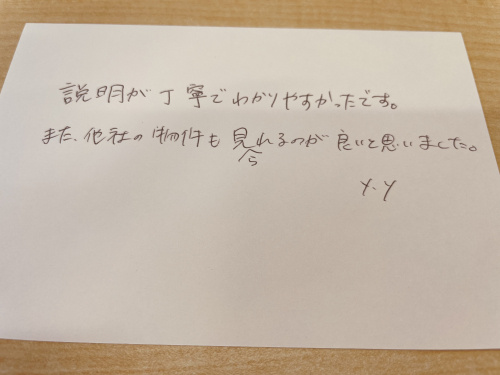 説明が丁寧でわかりやすかったです。
また、他社の物件も見られるのが良いと思いました。
Y.Y